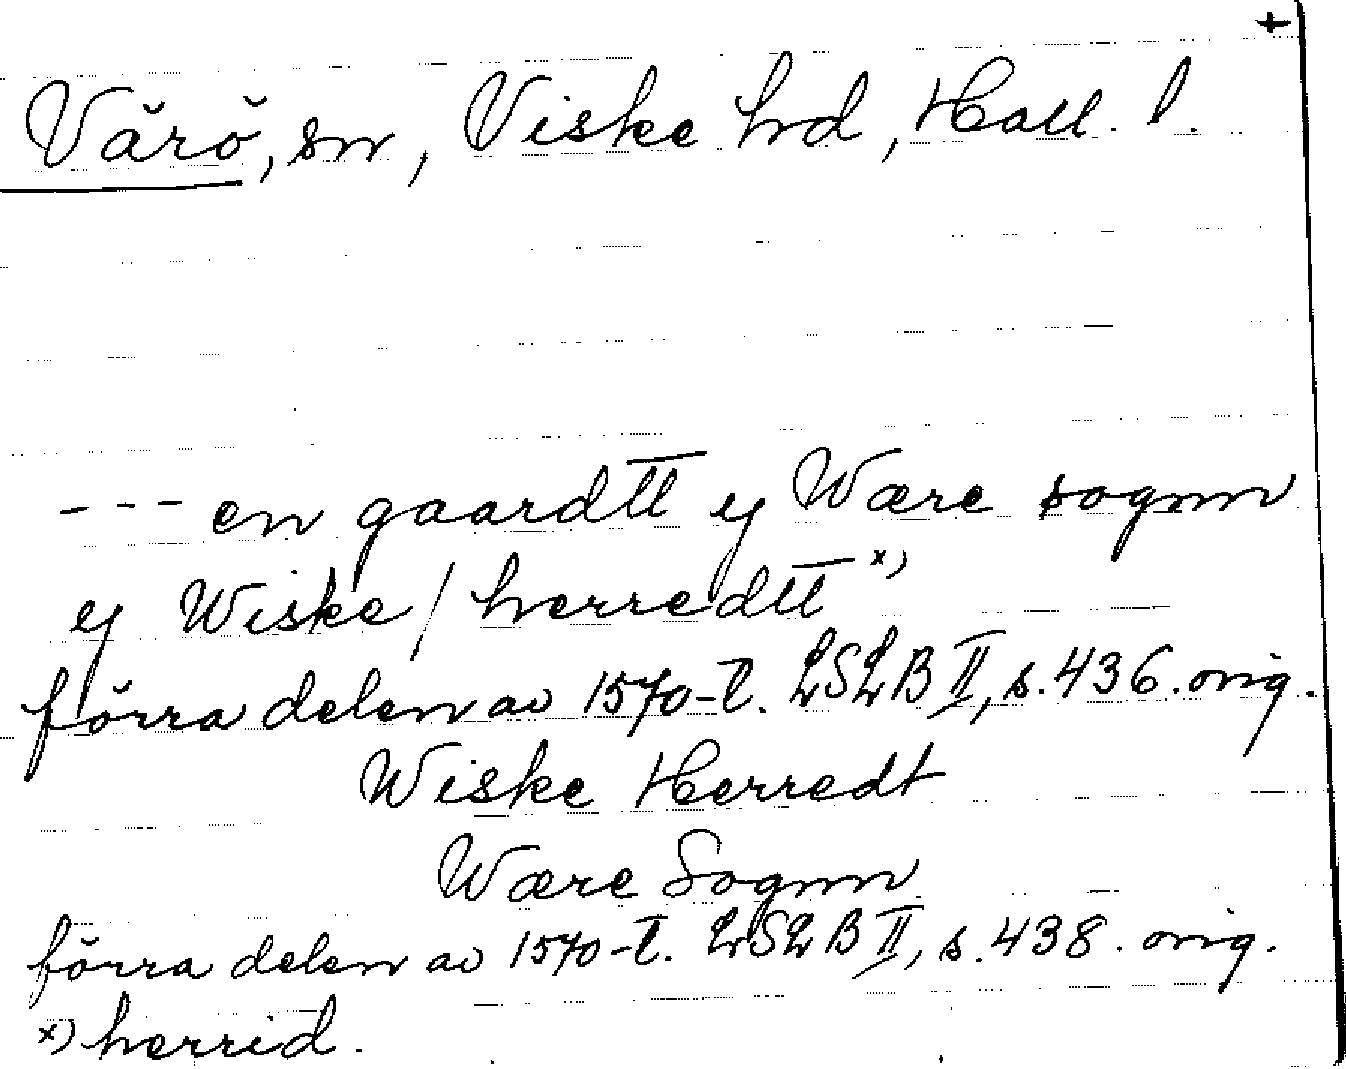 +
Värö, sn, Viske hd, Hall. l.
--- en gaardtt ey Wære sognn
ey Wiske/herredtt x)
förra delen av 1570-t. LSLB II, s. 436. orig.
Wiske Herredt
Wære Sognn
förra delen av 1570-t. LSLB II, s. 438. orig.
x) herrid.